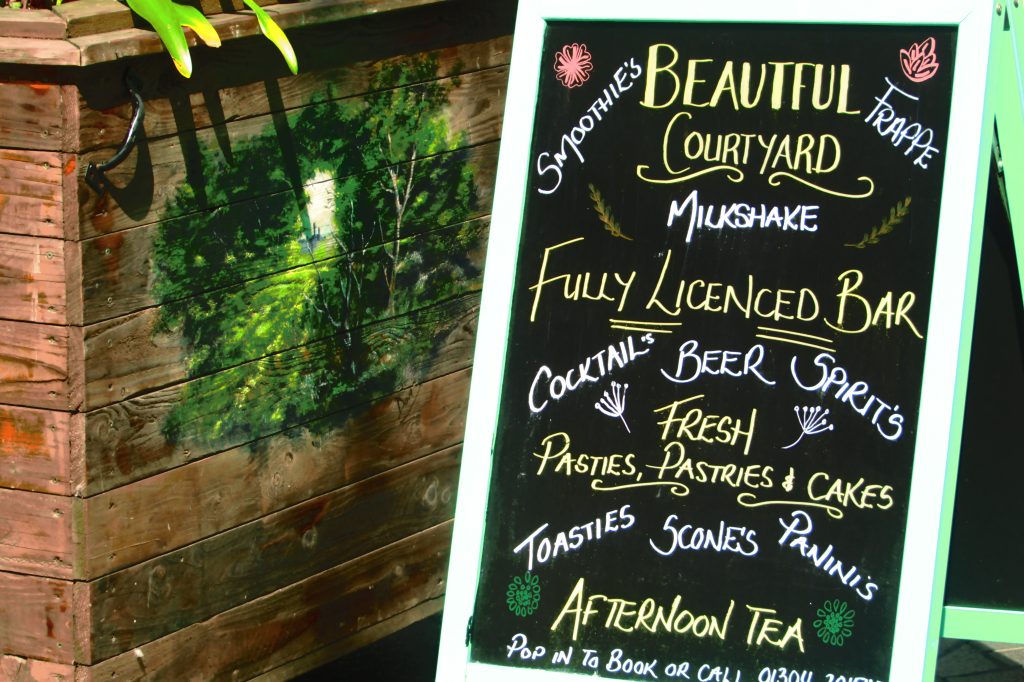 BEAUTFUL
SMOOTHIE'S
FRAPPE
COURTYARD
MILKSHAKE
FULLY LICENCED BAR
COCKTAIL'S BEER SPIRIT'S
FRESH
PASTIES, PASTRIES & CAKES
TOASTIES SCONE'S PANINI'S
AFTERNOON TEA
POP IN TO BOOK OR CALL 01304